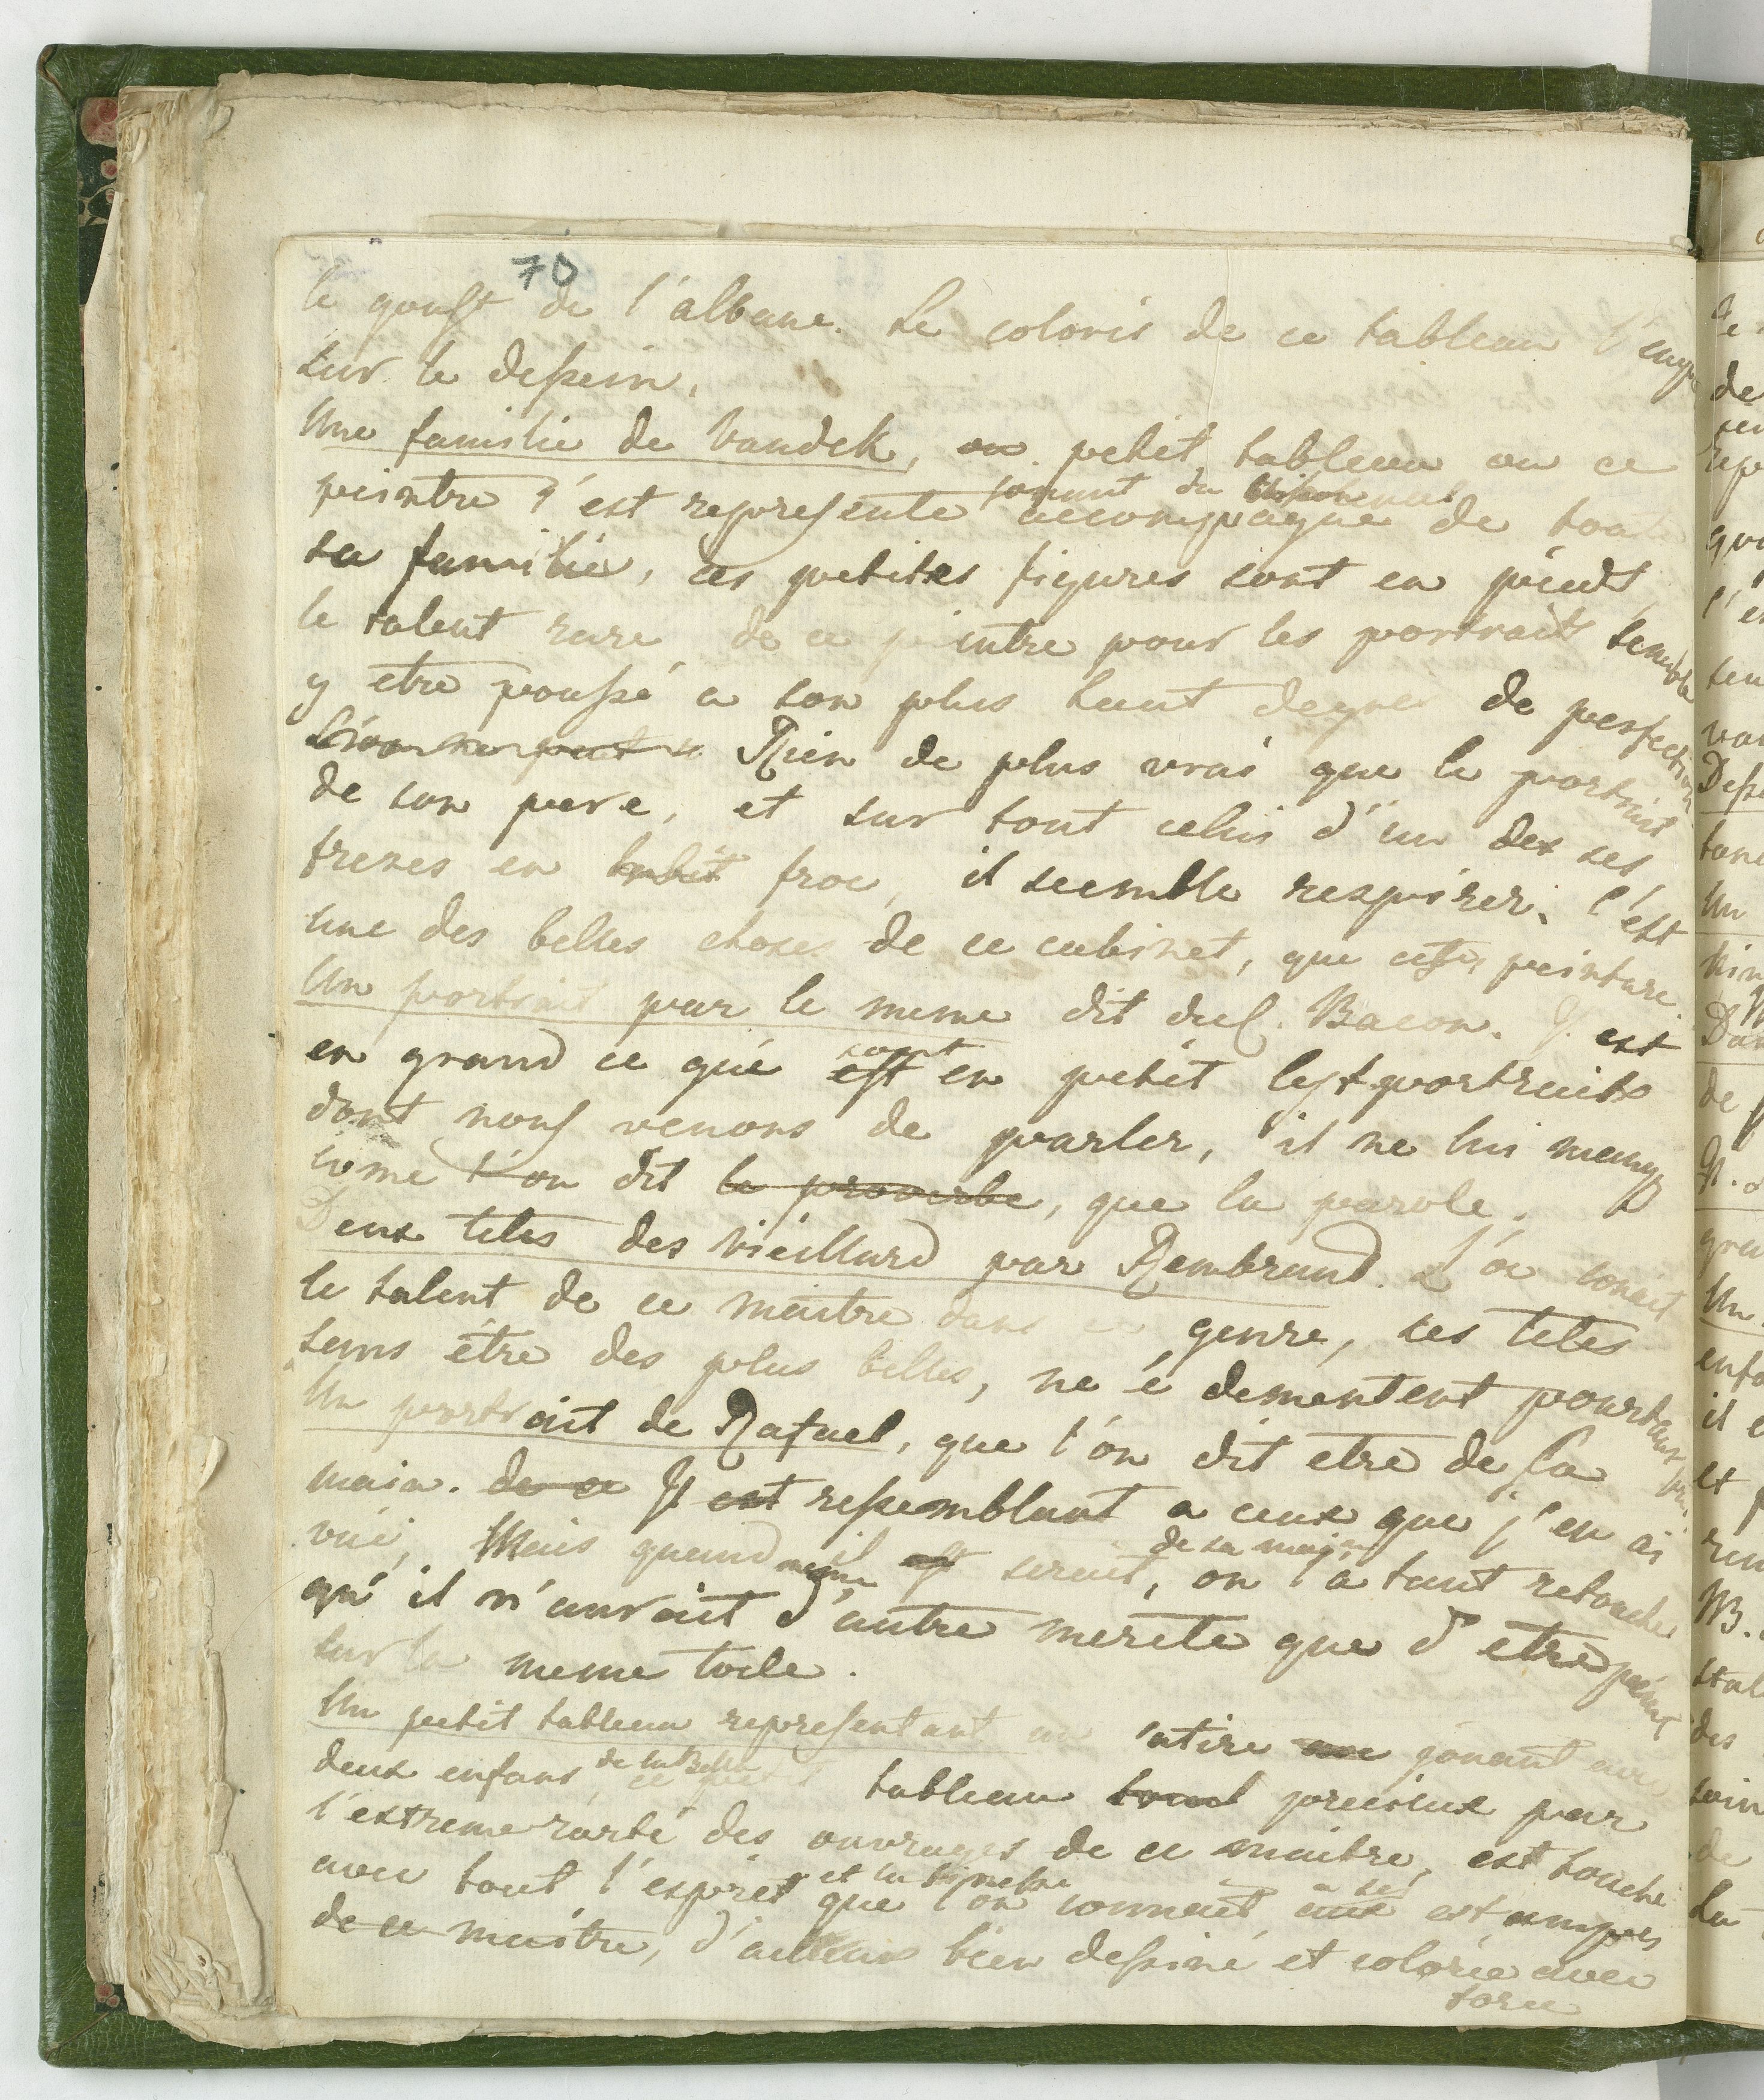 70
le goust de l'albane. Le coloris de ce tableau l'emp
sur le dessein.
Une familie de Vandek, ou petit tableau ou ce
jouant du
peintre s'est represente accompagne de toute
sa familie, ces petites figures sont en pieds
le talent rare de ce peintre pour les portraits semble
y etre poussé a son plus haut degres de perfection
Rien de plus vrai que le portrait
de son pere, et sur tout celui d'un des ses
freres en habit froc, il seemble respirer. C'est
une des belles choses de ce cabinet, que cette peinture
Un portrait par le meme dit du C. Bacon. Il est
sont
en grand ce que est en petit les portraits
dont nous venons de parler, il ne lui manq
come l'on dit le proverbe, que la parole.
Deux tetes des vieillard par Rembrand. L'on conait
le talent de ce maitre dans ce genre, ses tetes
sans être des plus belles, ne e dementent pourtant
Un portrait de Rafael, que l'on dit etre de sa
main. de ce Il est ressemblant a ceux que j'en ai
de sa main
vüe, Mais quand meme il est serait, on l'a tant retouche
qu'il n'aurait d'autre merite que d'etre peint
sur la meme toile.
Un petit tableau representant un satire jouant avec
de la Belle
deux enfans ce petit tableau tout precieux par
l'extreme rarté des ouvrages de ce maitre, est touche
et la finesse
a ses
avec tout l'esprit que l'on connait aux estampes
de ce maitre, d'ailleurs bien dessiné et colorie avec
force